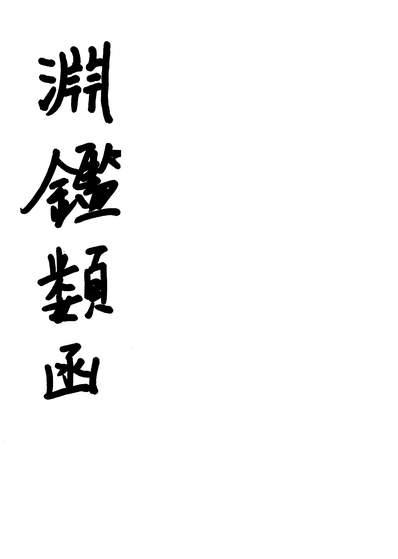 淵鑑類函